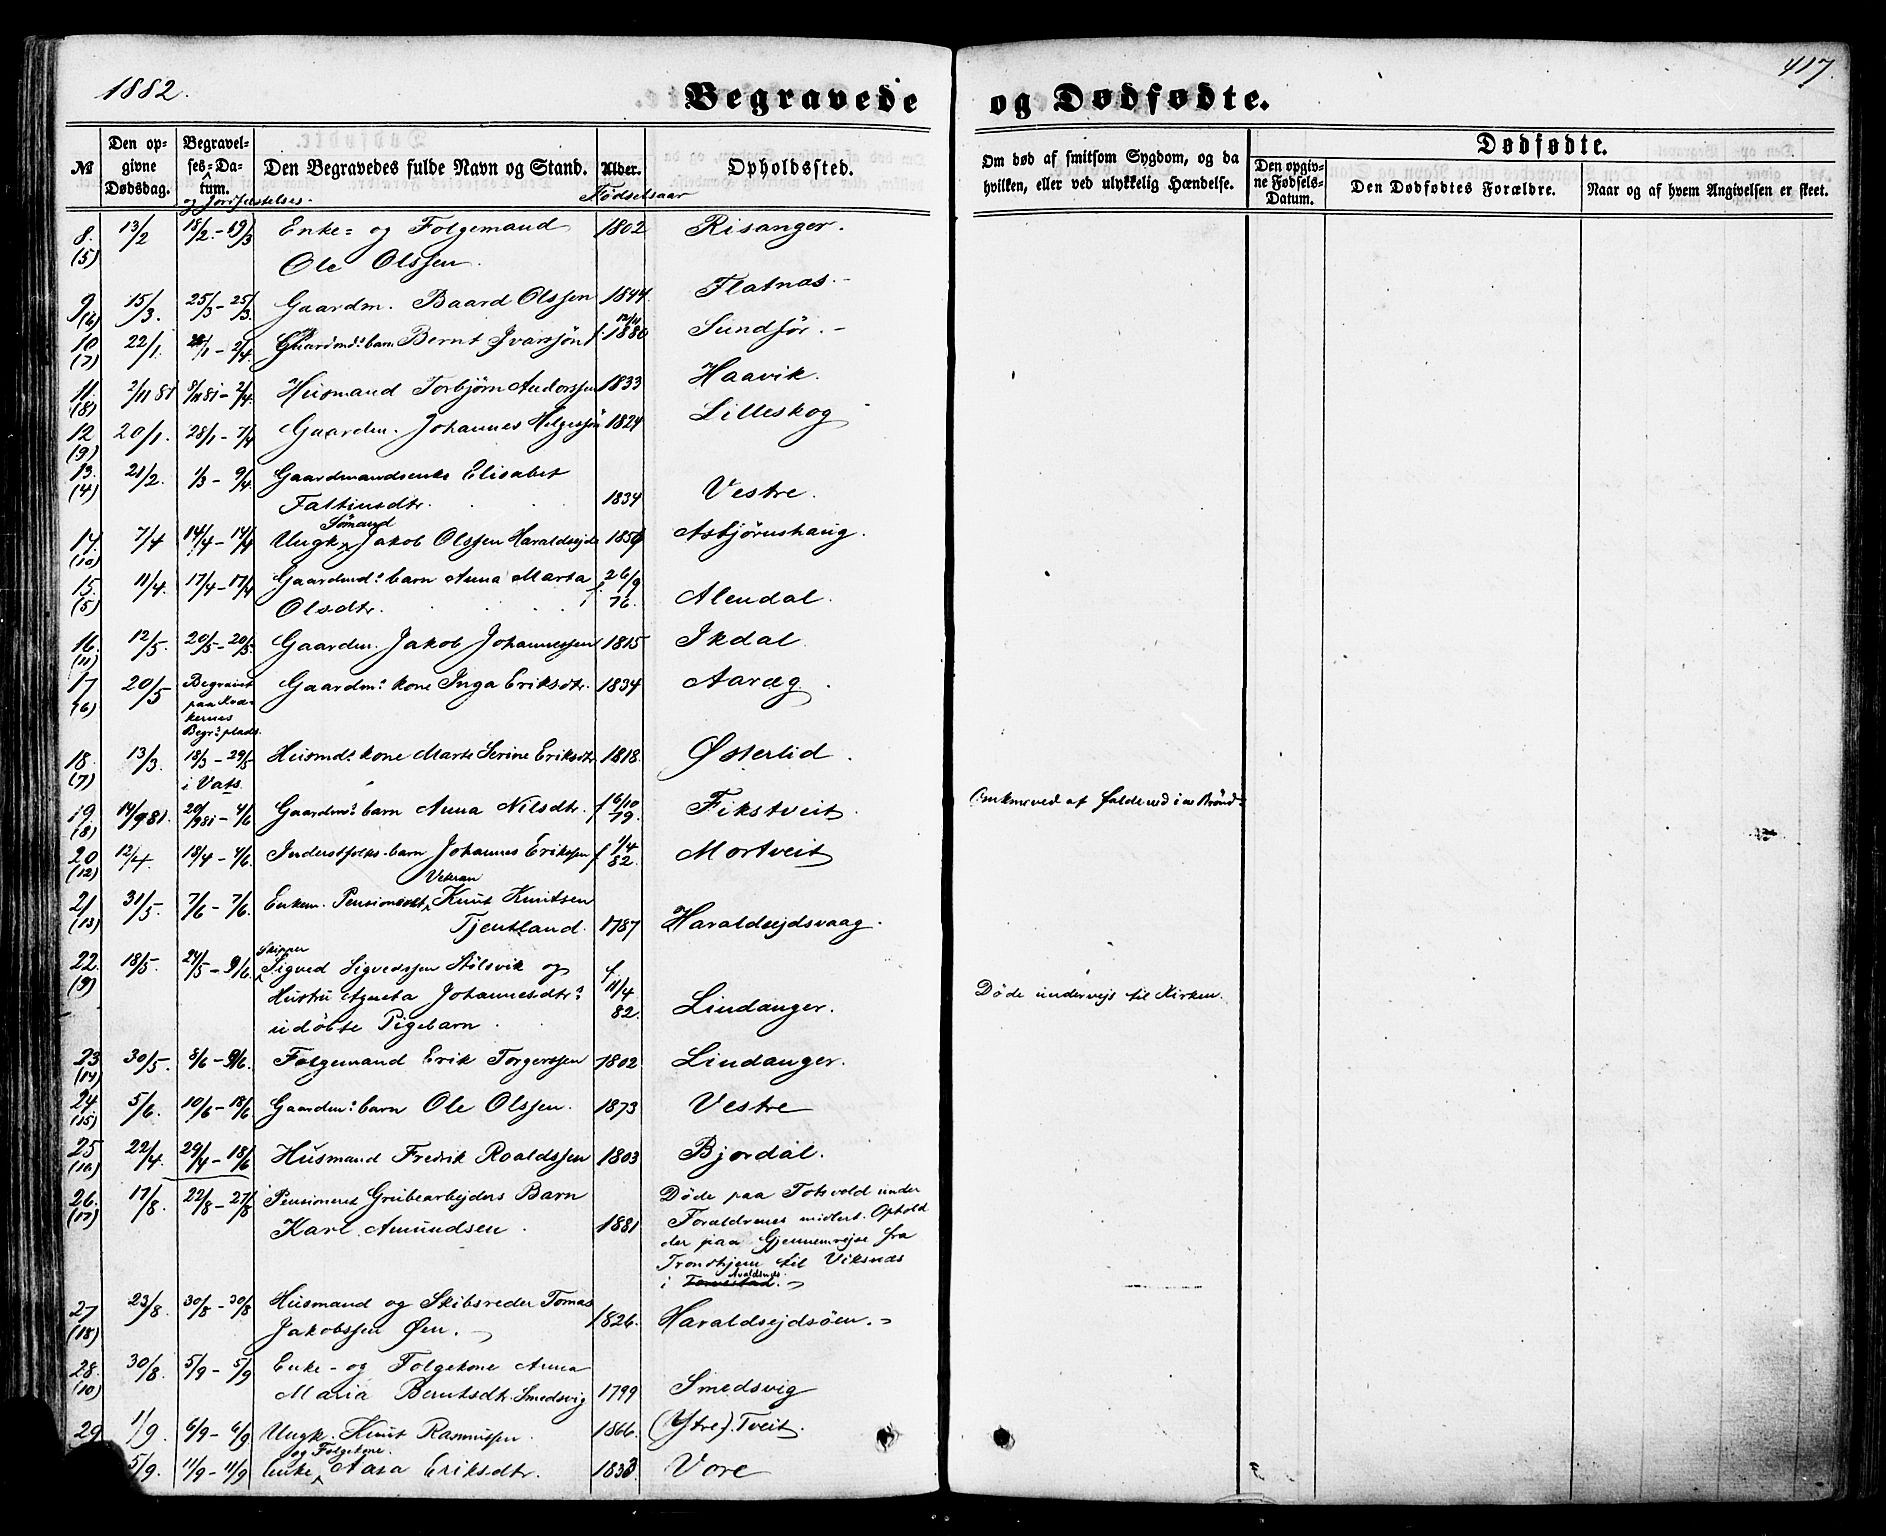 1882.
Begravede
og Dødfødte.
417
№
Den opgivne Dødsdag.
Begravelses-Datum.
og Jordfæstelses.
Den Begravedes fulde Navn og Stand.
Alder.
Fødselsaar
Opholdssted.
Om død af smitsom Sygdom, og da hvilken, eller ved ulykkelig Hændelse.
Dødfødte.
Den opgivne Fødsels-Datum.
Den Dødfødtes Forældre.
Naar og af hvem Angivelsen er skeet.
8. 13/2 18/2 - 19/3 Enke- og Folgemand 1802 Risanger.
(5) Ole Olssen.
9 15/3. 25/3 - 25/3. Gaardm. Baard Olssen 1844 Flatnæs. -
(6)
10 22/1. /1 - 2/4. Gaardmds barn Bernt Ivarssøn f. 12/11 1880 Sundför. -
(7)
11. 2/11 81 8/11 81 - 2/4. Husmand Torbjørn Anderssen 1833 Haavik.
(8)
12 20/1. 28/1 - 7/4 Gaardm. Johannes Helgessøn 1824 Lilleskog
(9)
13. 21/2. 1/3 - 9/4. Gaardmandsenke Elisabet
(4) Faltinsdtr. 1834 Vestre.
Sømand
14. 7/4 14/4 - 14/4 Ungk. Jakob Olssen Haraldsejde 1854 Asbjørnshaug.
(10)
15. 11/4. 17/4 - 17/4 Gaardmds barn Anna Marta f 26/9
(5) Olsdtr. 76. Alendal.
16. 12/5. 20/5 - 20/5 Gaardm. Jakob Johannessen 1815 Ikdal.
(11)
17 20/5 Begravet Gaardms kone Inga Eriksdtr. 1834 Aaræg.
(6) paa Kvækernes
Begr.plads.
18. 13/3. 18/3 - 29/5 Husmds kone Marte Serine Eriksdtr 1818. Østerlid
(7) i Vats.
19. 14/9 81. 20/9 81 - 4/6 Gaardms barn Anna Nilsdtr. f 6/10 79. Fikstveit. Omkom ved at falde ned i en Brønd.
(8)
20 12/4 18/4 - 4/6. Inderstfolks barn Johannes Erikssen f 1/4 82. Mortveit
(12)
Veteran
21 31/5. 7/6 - 7/6. Enkem. Pensionist Knut Knutsen
(13) Tjentland. 1787 Haraldsejdsvaag.
Skipper
22. 18/5. 24/5 - 9/6. Sigved Sigvedssen Stølsvik og f.
(9) Hustru Agneta Johannesdtrs 11/4 82. Lindanger. Döde undervejs til Kirken.
udöbte Pigebarn.
23 30/5. 8/6 - 9/6. Folgemand Erik Torgerssen 1802 Lindanger.
(14)
24 5/6. 10/6 - 18/6 Gaardms barn Ole Olssen. 1873 Vestre
(15)
25 22/4. 29/4 - 18/6 Husmand Fredrik Roaldssen 1803 Bjordal.
26. 17/8. 22/8 - 27/8 Pensioneret Grubearbejders Barn Döde paa Totsvold under
(17) Karl Amundsen. 1881 Forældrenes midlert. Ophold
der paa Gjennemrejse fra
Trondhjem til Viksnæs
Avaldsnes.
i Torvestad.
27 23/8. 30/8 - 30/8 Husmand og Skibsreder Tomas
(18) Jakobssen Øen. 1826. Haraldsejdsöen.
28. 30/8. 5/9 - 5/9 Enke- og Folgekone Anna
(10) Maria Berntsdtr. Smedsvig 1799 Smedsvig
29 1/9. 6/9 - 6/9 Ungk. Knut Rasmussen. 1866. (Ytre). Tveit.
og Folgekone.
5/9. 11/9 - 11/9 Enke Aasa Eriksdtr. 1833 Vore